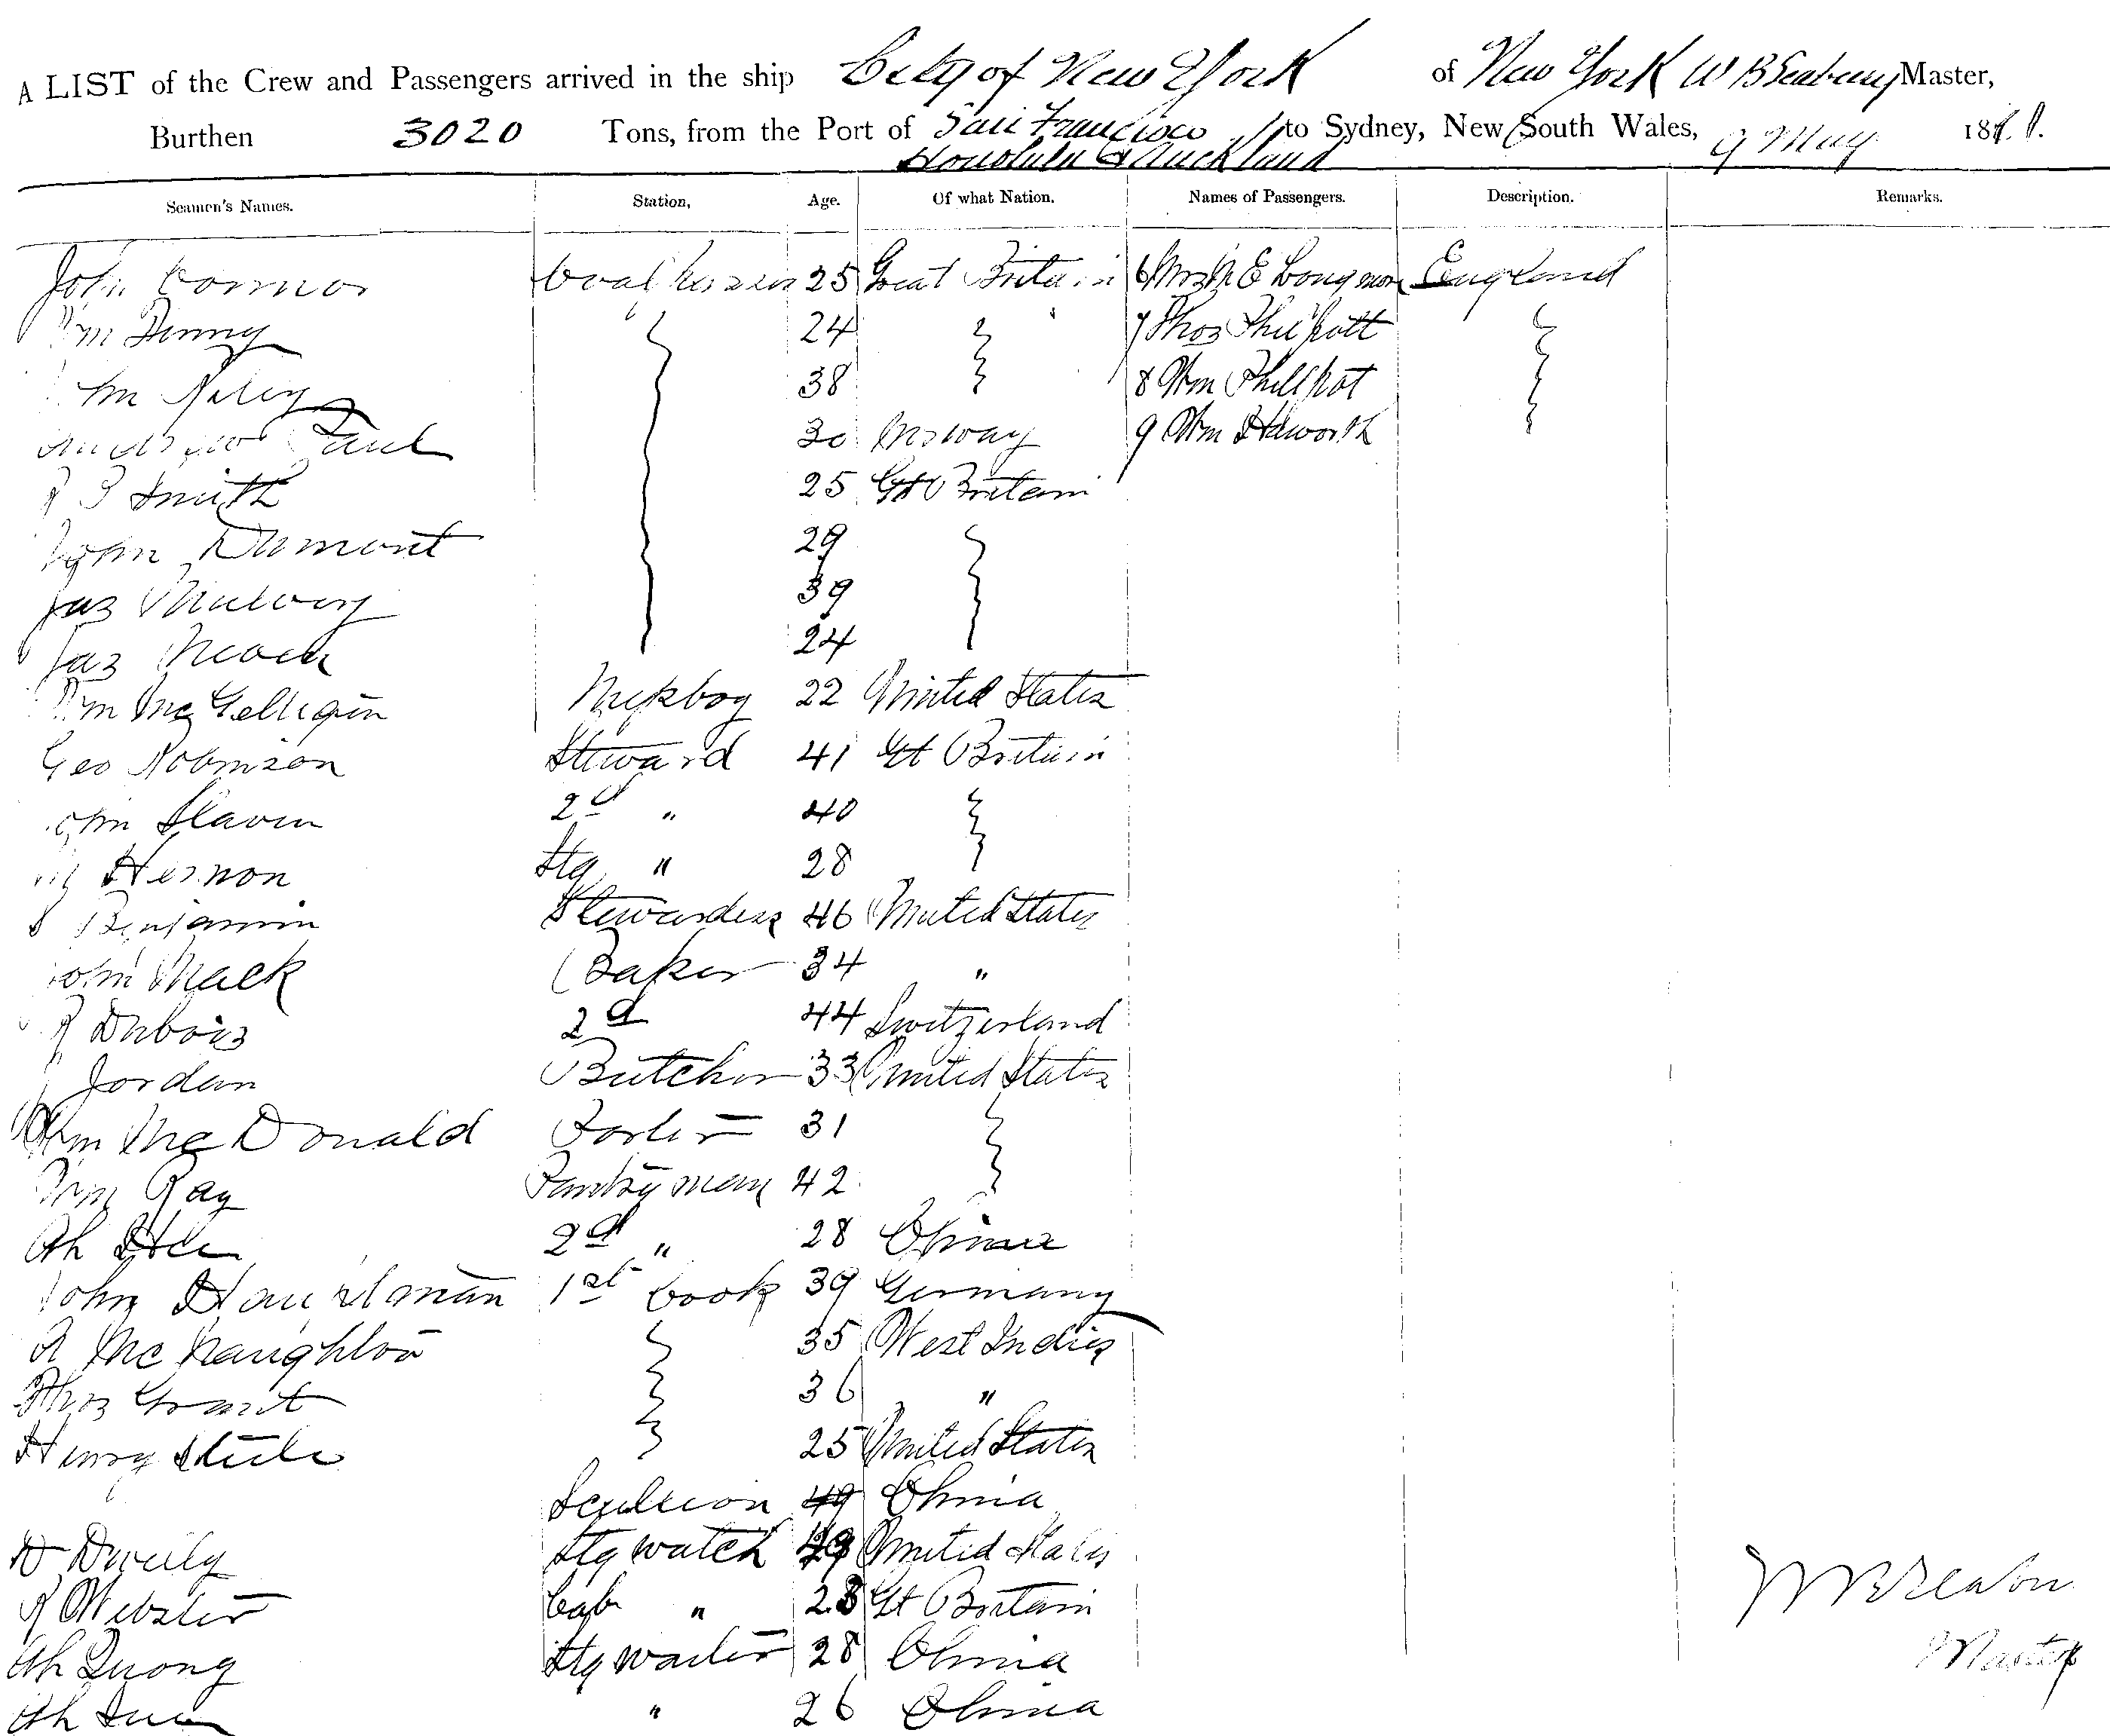 A LIST of the Crew and Passengers arrived in the ship City of New York of New York W B Seabury Master,
Burthen 3020 Tons, from the Port of San Francisco to Sydney, New South Wales, 9 May 188
Honolulu & Auckland
Seamen's Names. Station, Age. Of what Nation. Names of Passengers. Description. Remarks.
John Connor Coal passer 25 Great Britain 6 Mrs E Longmore England
Wm Denny 24 7 Thos Philpott
Wm Kelly 38 8 Wm Phillpot
Andrew Paul 30 Norway 9 Wm Haworth
Smith 25 Gt Britain
John Dumont 29
Jas Mulvey 39
Jas 24
Wm McGelligin Messboy 22 United States
Geo Robinson Steward 41 Gt Britain
John Slavin 2d " 40
Hernon Stg " 28
Benjamin Stewardess 46 United States
John Mack Baker 34 "
Dubois 2d 44 Switzerland
Jordan Butcher 33 United States
Wm McDonald Porter 31
Wm Ray Pantryman 42
Ah 2d " 28 China
John 1st Cook 39 Germany
McNaughton 35 West Indies
Thos Grant 36 "
Henry Steele 25 United States
Scullion 49 China
Stg watch United States
Webster Cab " 28 Gt Britain
Ah Quong Stg waiter 28 China
Ah " 26 China
Master